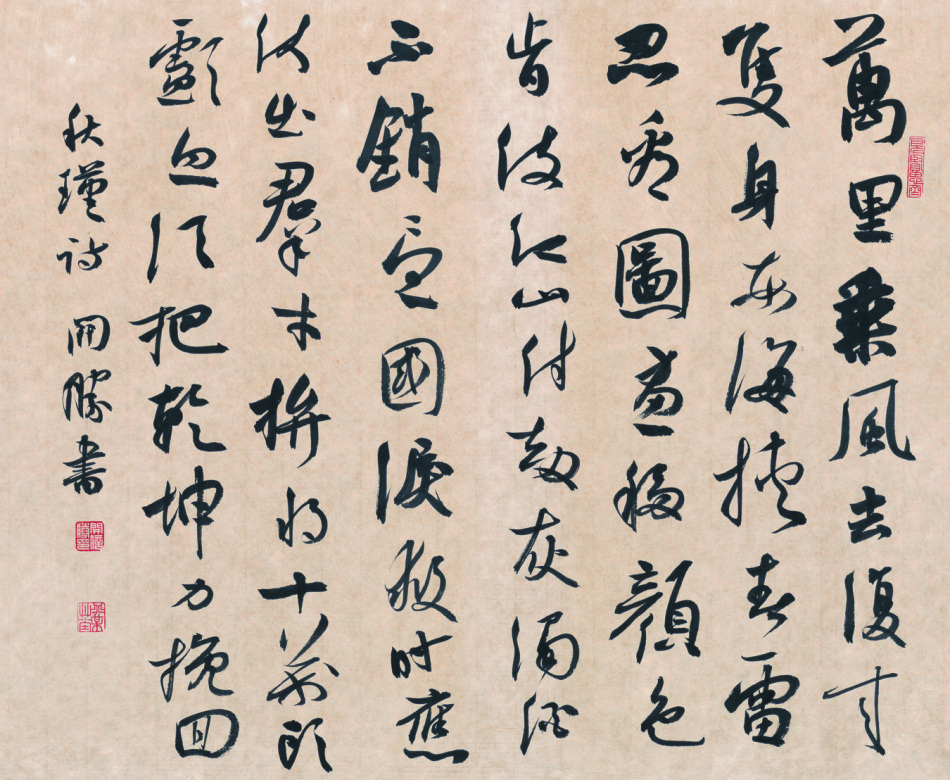 萬里乘風去復來
隻身東海挾春雷
忍看圖畫移顏色
肯使江山付劫灰濁酒
不銷憂國淚救時應
仗出羣才拚將十萬頭
顱血須把乾坤力挽回
秋瑾詩 開勝書